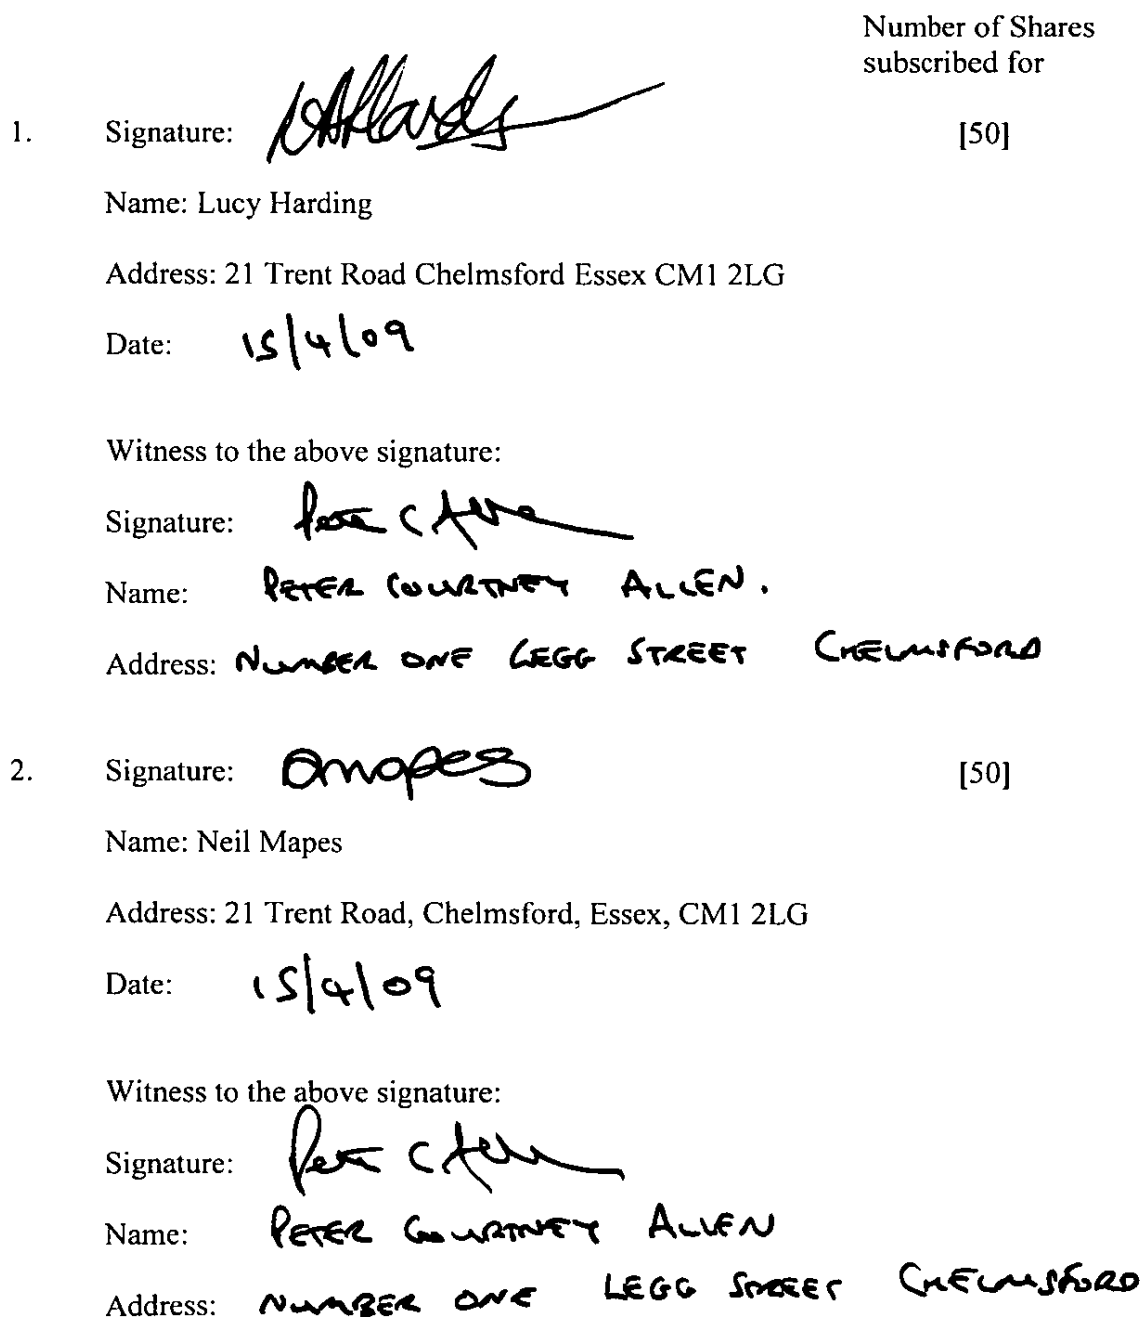 Number of Shares
subscribed for
1. Signature: [50]
Name: Lucy Harding
Address: 21 Trent Road Chelmsford Essex CM1 2LG
Date: 15/4/09
Witness to the above signature:
Signature: Peter C Allen
Name: PETER COURTNEY ALLEN.
Address: NUMBER ONE LEGG STREET CHELMSFORD
2. Signature: Dmapes [50]
Name: Neil Mapes
Address: 21 Trent Road, Chelmsford, Essex, CM1 2LG
Date: 15/4/09
Witness to the above signature:
Signature: Peter C Allen
Name: PETER COURTNEY ALLEN
Address: NUMBER ONE LEGG STREET CHELMSFORD